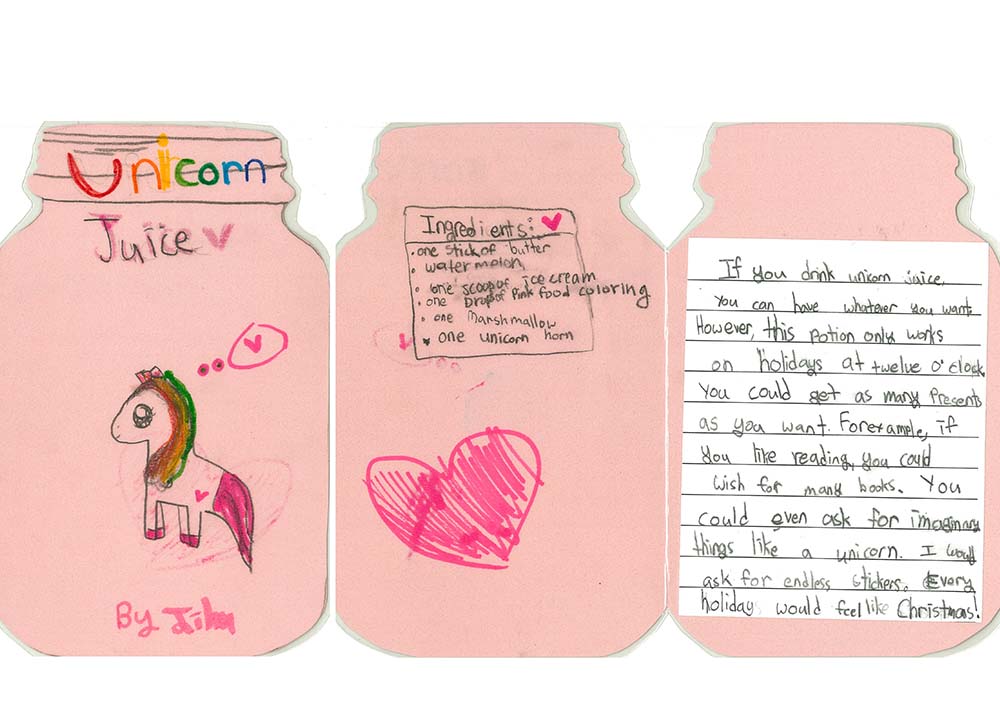 Unicorn
Juice
By Jihu
Ingredients:
one stick of butter
watermelon
one scoop of ice cream
one Drop of Pink food coloring
one Marshmallow
one unicorn horn
If you drink unicorn juice,
you can have whatever you want.
However, this Potion only works
on holidays at twelve o'clock
You could get as many Presents
as you want. Forexample, if
You like reading, you could
wish for many books. You
could even ask for imaginary
things like a unicorn. I would
ask for endless stickers. Every
holiday would feel like Christmas!